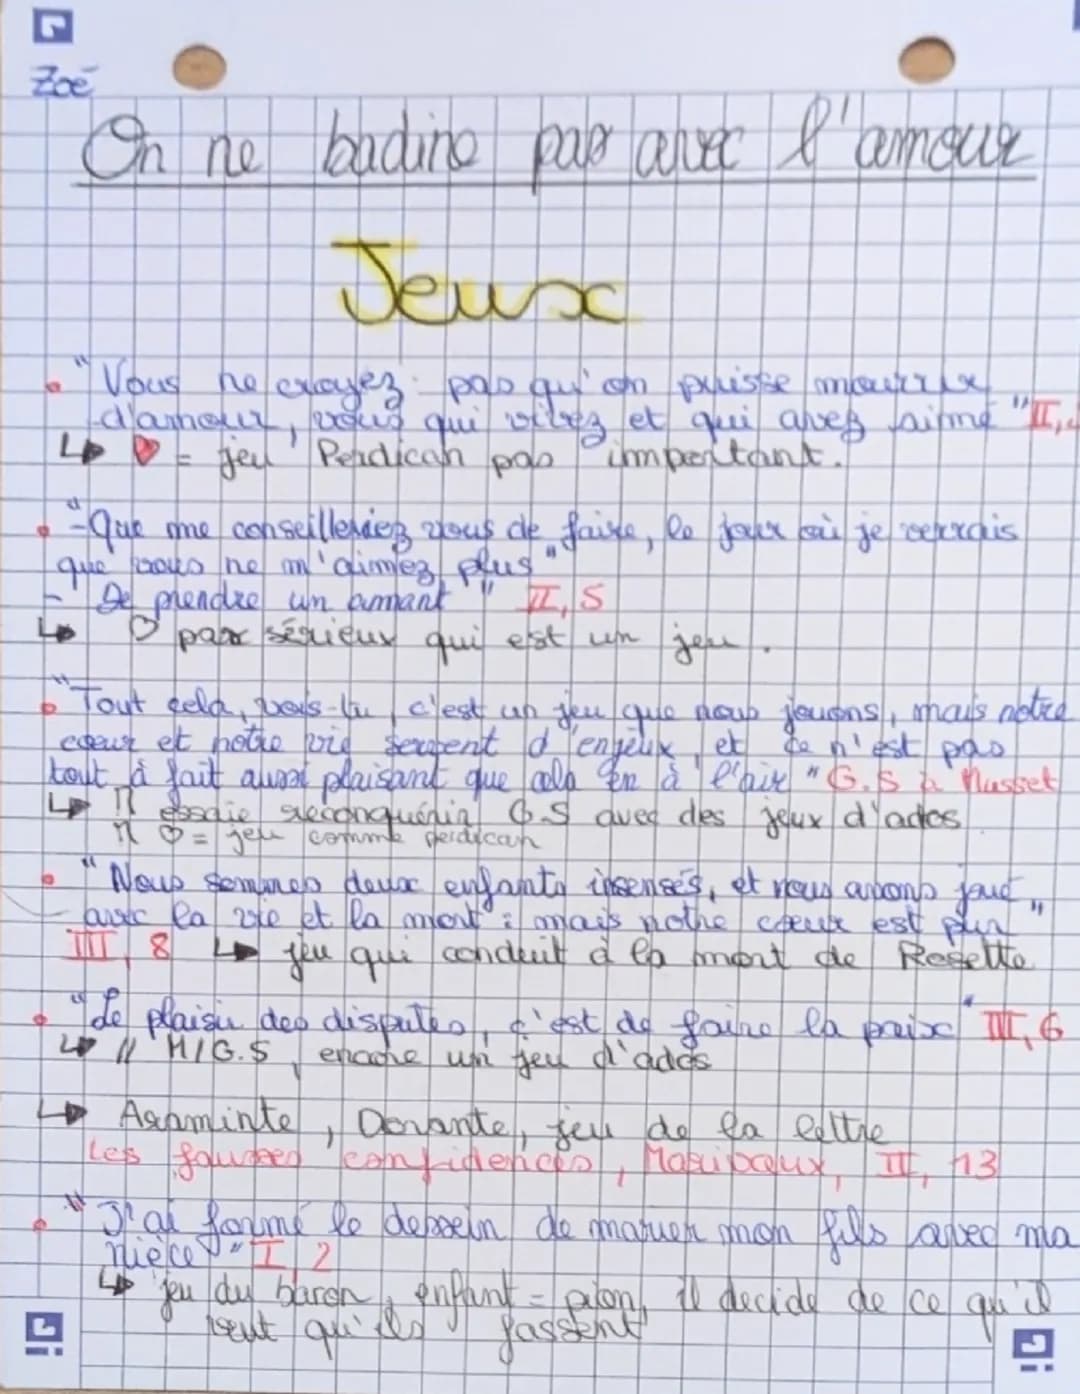 Zoé
On ne badine pas avec l'amour
Jeux
"Vous ne croyez pas qu'on puisse mourrir
d'amour, vous qui vivez et qui avez aimé" II,
↳ ♥ = jeu Perdican pas important.
"-Que me conseilleriez vous de faire, le jour où je verrais
que vous ne m'aimez plus"
-"De prendre un amant" II, 5
↳ ♡ pas sérieux qui est un jeu.
"Tout cela, vois-tu, c'est un jeu que nous jouons, mais notre
cœur et notre vie servent d'enjeux, et ce n'est pas
tout à fait aussi plaisant que cela en a l'air" G.S à Musset
↳ Il essaie reconquérir G.S avec des jeux d'ados
♡ = jeu comme perdican
"Nous sommes deux enfants insensés, et nous avons joué
avec la vie et la mort ; mais notre cœur est pur"
III, 8 ↳ jeu qui conduit à la mort de Rosette
"Le plaisir des disputes, c'est de faire la paix" III, 6
↳ // M/G.S, encore un jeu d'ados
↳ Araminte, Dorante, jeu de la lettre
Les fausses confidences, Marivaux, II, 13
"J'ai formé le dessein de marier mon fils avec ma
nièce" I, 2
↳ jeu du baron, enfant = pion, il decide de ce qu'il
veut qu'ils fassent